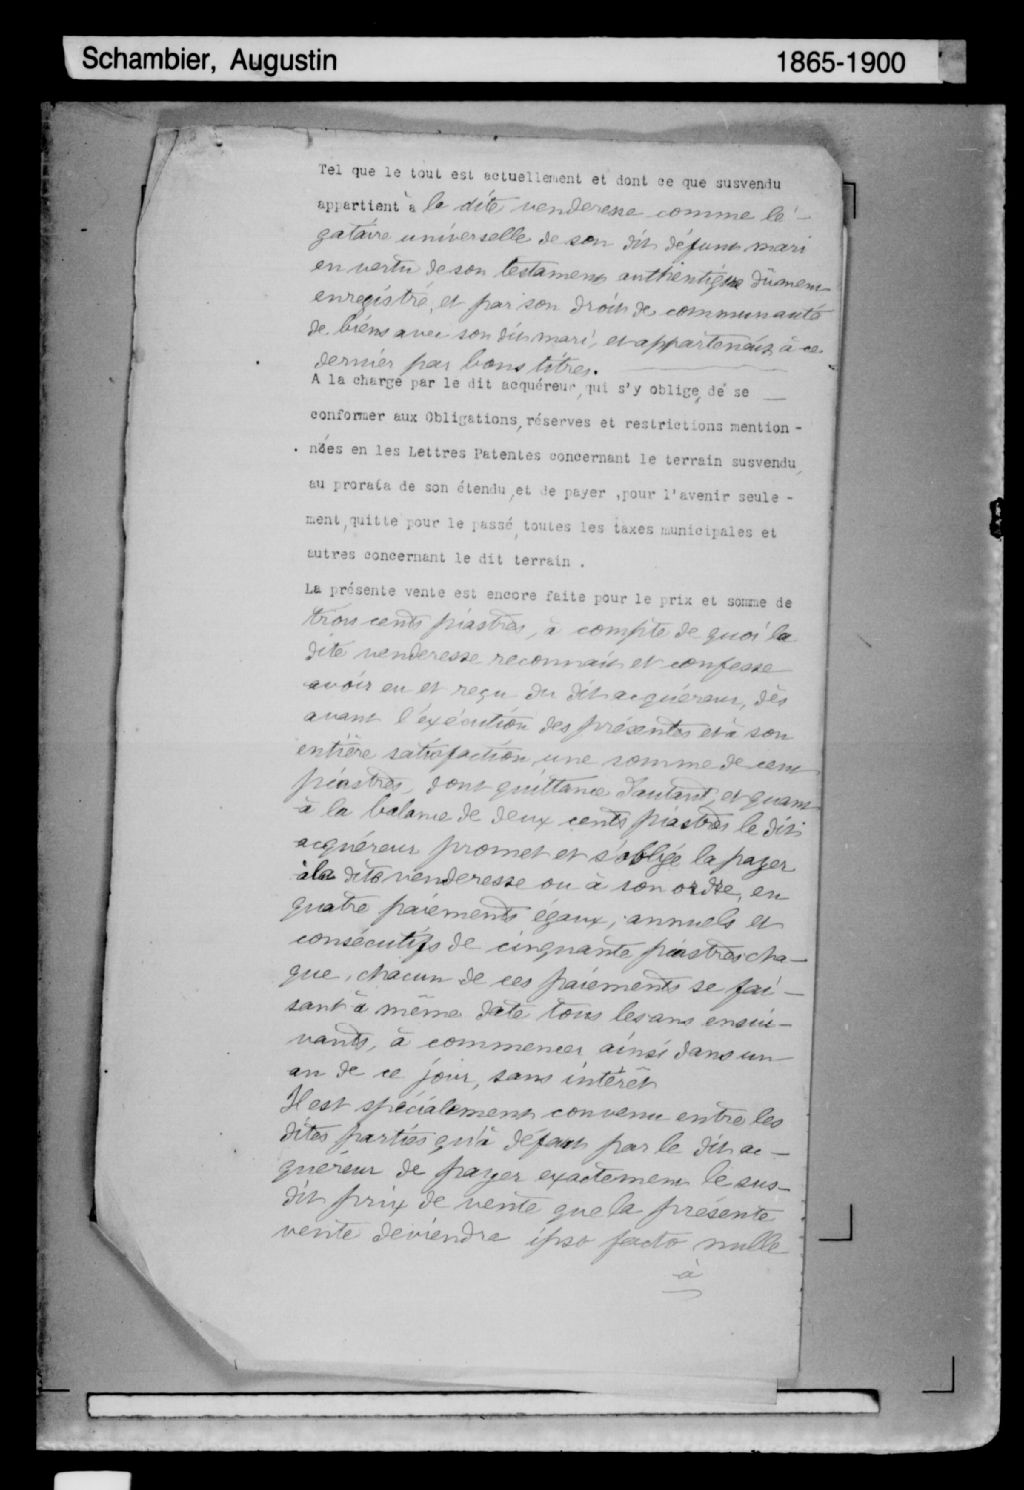 Schambier, Augustin 1865-1900
Tel que le tout est actuellement et dont ce que susvendu
appartient à la dite venderesse comme lé-
gataire universelle de son dit défunt mari
en vertu de son testament authentique dûment
enregistré, et par son droit de communauté
de biens avec son dit mari, et appartenait à ce
dernier par bons titres.
A la charge par le dit acquéreur, qui s'y oblige, de se
conformer aux Obligations, réserves et restrictions mention-
nées en les Lettres Patentes concernant le terrain susvendu,
au prorata de son étendu, et de payer, pour l'avenir seule-
ment, quitte pour le passé, toutes les taxes municipales et
autres concernant le dit terrain.
La présente vente est encore faite pour le prix et somme de
trois cents piastres, à compte de quoi la
dite venderesse reconnait et confesse
avoir eu et reçu du dit acquéreur, dès
avant l'exécution des présentes et à son
entière satisfaction, une somme de cent
piastres, dont quittance d'autant, et quant
à la balance de deux cents piastres le dit
acquéreur promet et s'oblige la payer
à la dite venderesse ou à son ordre, en
quatre paiements égaux, annuels et
consécutifs de cinquante piastres cha-
que, chacun de ces paiements se fai-
sant à même date tous les ans ensui-
vants, à commencer ainsi dans un
an de ce jour, sans intérêt
Il est spécialement convenu entre les
dites parties qu'à défaut par le dit ac-
quéreur de payer exactement le sus-
dit prix de vente que la présente
vente deviendra ipso facto nulle
à